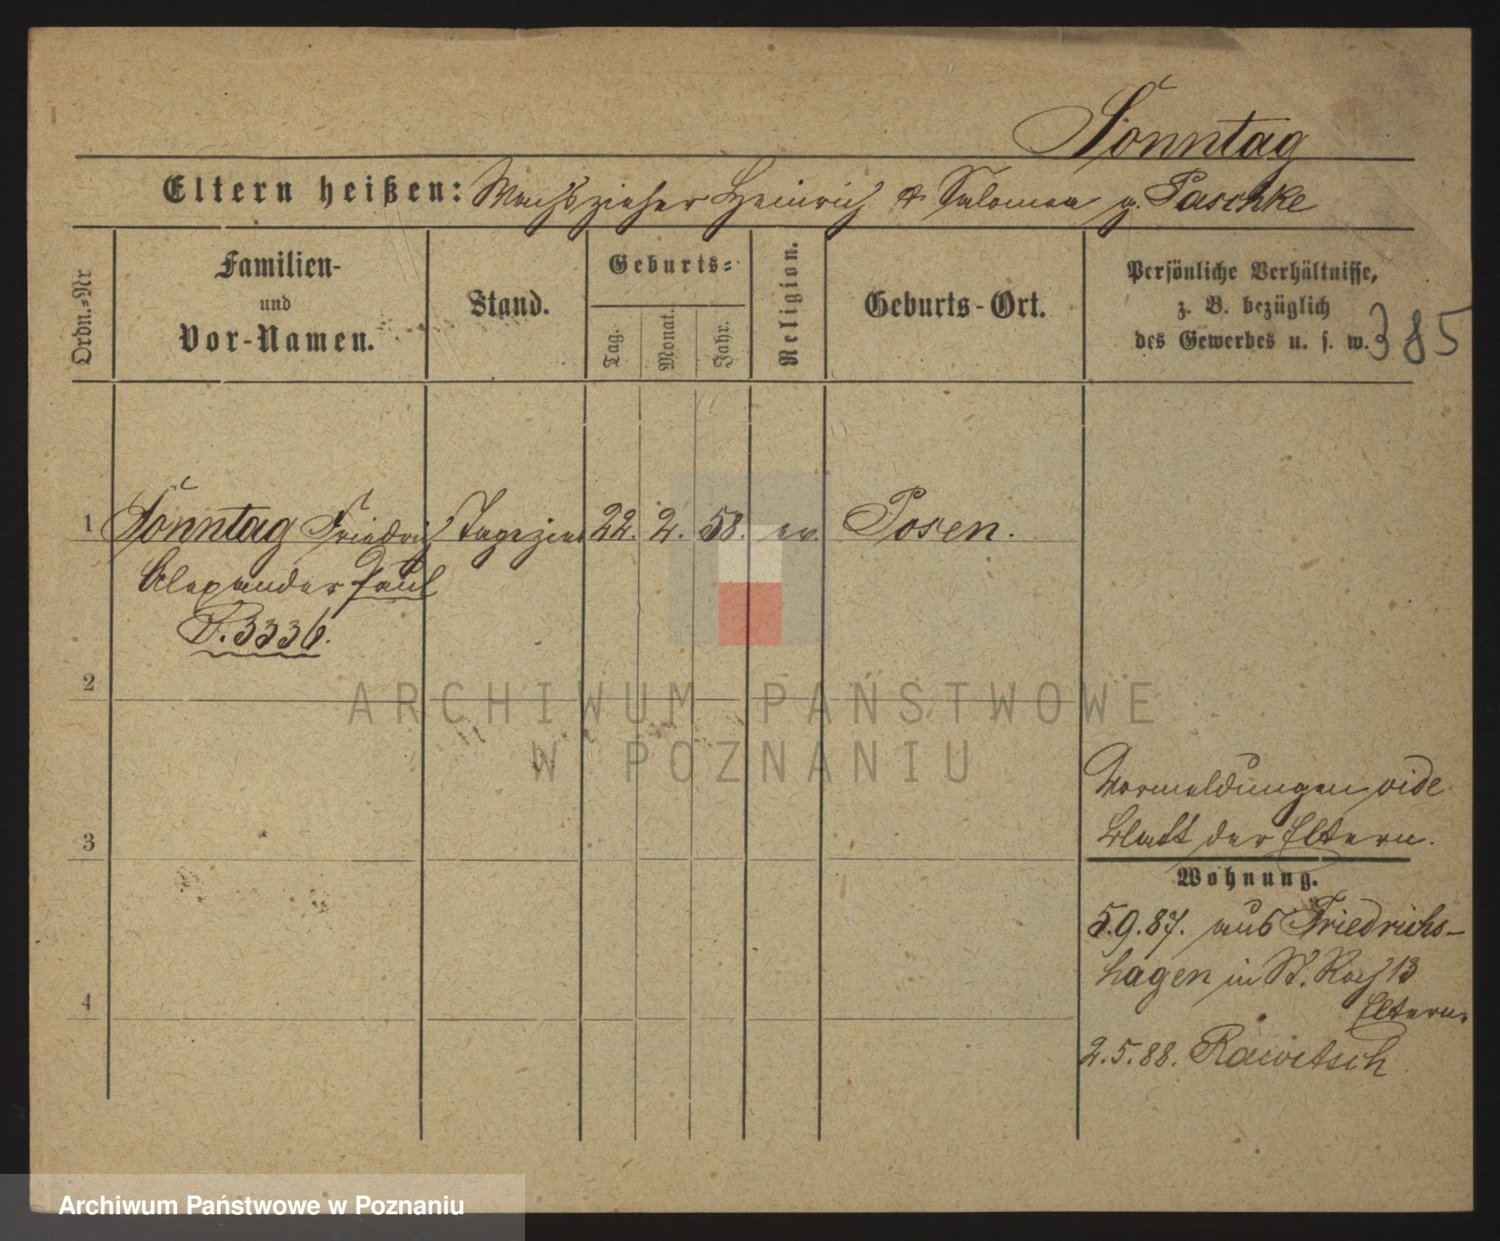 Sonntag
Eltern heißen: Wachszieher Heinrich & Salomea g. Paschke
Ordn.=Nr
Familien-
und
Vor-Namen.
Stand.
Geburts=
Tag.
Monat.
Jahr.
Religion.
Geburts-Ort.
Persönliche Verhältnisse,
z. B. bezüglich
des Gewerbes u. s. w.
385
1 Sonntag Friedrich Tapezier 22. 2. 58. ev. Posen.
Alexander Paul
P. 3336.
2
ARCHIWUM PAŃSTWOWE
W POZNANIU
Vormeldungen vide
3 Blatt der Eltern.
Wohnung.
5.9.87. aus Friedrichs-
hagen in St. Roch 13
4 Eltern.
2.5.88. Rawitsch
Archiwum Państwowe w Poznaniu